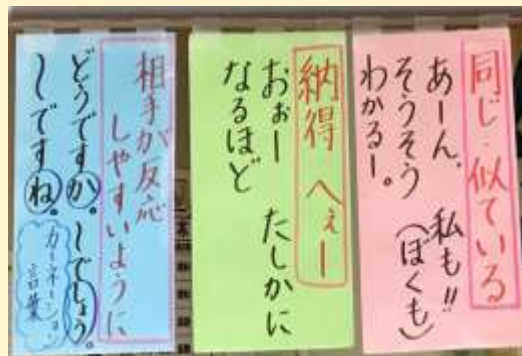 同じ・似ている
あーん、私も!!
そうそう(ぼくも)
わかるー。
納得 へぇー
おぉー たしかに
なるほど
相手が反応
しやすいように
どうですか。〜でしょう。
〜ですね。
カーネーション
言葉